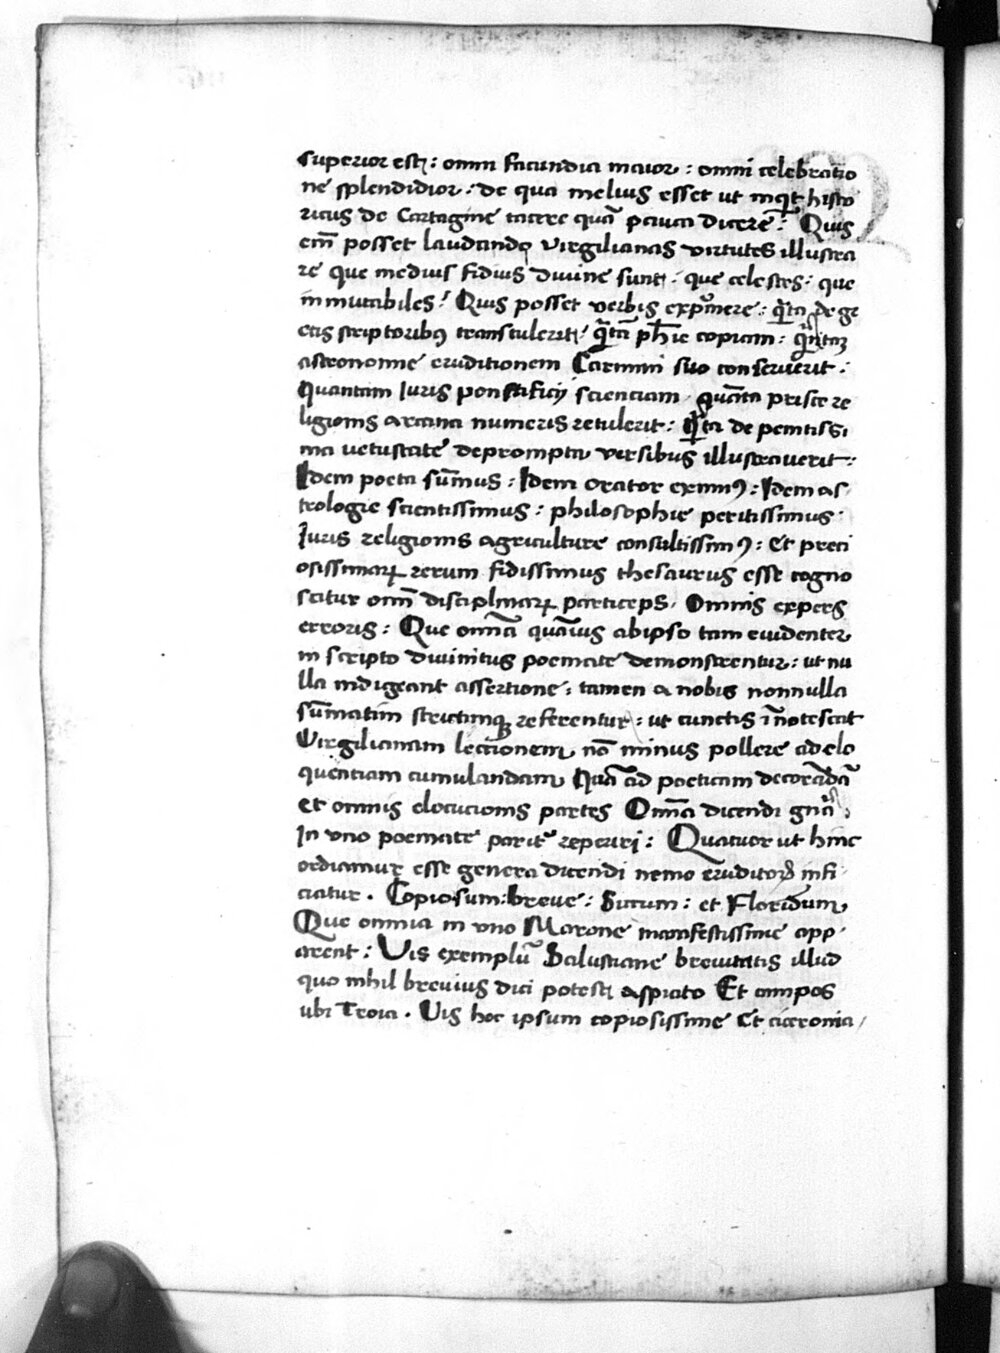 superior est : omni facundia maior : omni celebratio
ne splendidior : de qua melius esset ut inq̄t histo
ricus de Cartagine tacere quā pauca dicere : Quis
em̄ posset laudando virgilianas virtutes illustra
re que medius fidius diuine sunt : que celestes : que
inmutabiles ! Quis posset verbis exp̄mere : q̄ta de gr
ecis scriptoribꝯ transtulerit ! q̄tā ph̄ie copiam : q̄ntaꝫ
astronomie eruditionem Carmini suo conseruerit :
Quantam Iuris pontificij scienciam quāta prisce re
ligionis arcana numeris retulerit : q̄ta de penitissi
ma uetustate deprompta versibus illustrauerit :
Idem poeta sūmus : Idem orator eximiꝯ : Idem as
trologie scientissimus : philosophie peritissimus :
Iuris religionis agriculture consultissimꝯ : Et preci
osissimaꝝ rerum fidissimus thesaurus esse cogno
scitur om̄ disciplinaꝝ particeps . Omnis expers
erroris : Que om̄ia quāuis abipso tam euidenter
in scripto diuinitus poemate demonstrentur : ut nu
lla indigeant assertione : tamen a nobis nonnulla
sūmatim strictimqꝫ referentur : ut cunctis īnotescat
Virgilianam lectionem nō minus pollere ad elo
quentiam cumulandam Quā ad poeticam decorādā
et omnis elocucionis partes Om̄ia dicendi gn̄a :
In vno poemate parit᷑ reperiri : Quatuor ut hinc
ordiamur esse genera dicendi nemo eruditoꝝ infi
ciatur . Copiosum : breue : Siccum : et Floridum
Que omnia in vno Marone manifestissime app
arent : Vis exemplū Salustiane breuitatis illud
quo nihil breuius dici potest aspicito Et campos
ubi Troia . Vis hoc ipsum copiosissime Et ciceronia